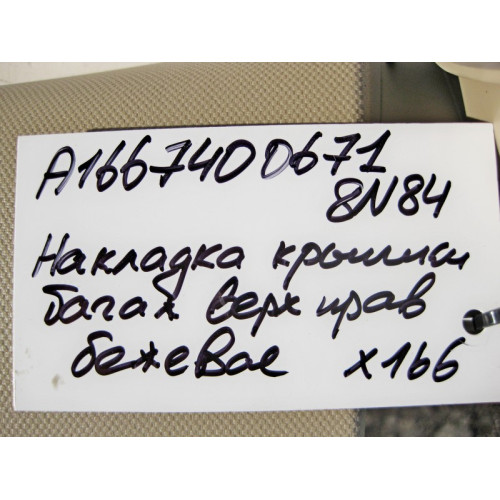 A1667400671
8N84
Накладка крышки
багаж верх прав
бежевое х166